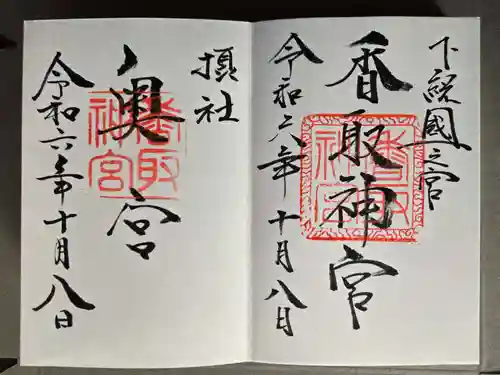 下総國一之宮
香取神宮
令和六年十月八日
摂社
奥宮
令和六年十月八日
香取神宮
香取神宮